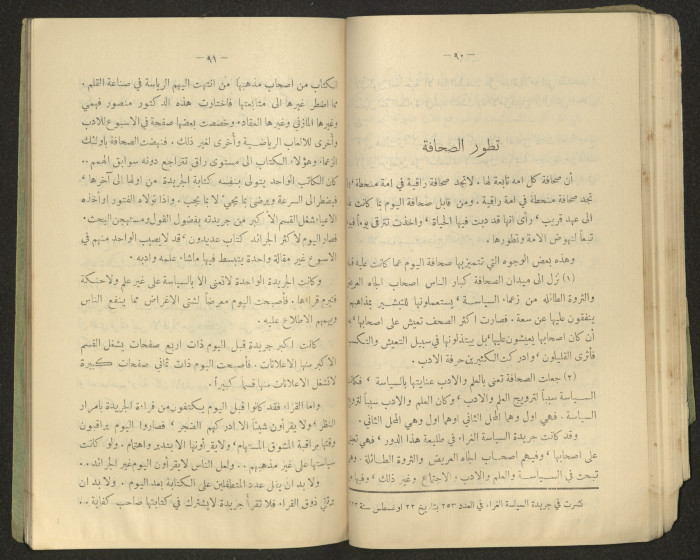 — ٩٠ —
تطور الصحافة
أن صحافة كل امة تابعة لها . لاتجد صحافة راقية في امة منحطة ولا
تجد صحافة منحطة في امة راقية . ومن قابل صحافة اليوم بما كانت عليه
الى عهد قريب رأى انها قد دبت فيها الحياة واخذت تترقى يوماً فيوماً
تبعاً لنهوض الامة وتطورها .
وهذه بعض الوجوه التي تتميز بها صحافة اليوم عما كانت عليه
(١) نزل الى ميدان الصحافة كبار الناس اصحاب الجاه العريض
والثروة الطائلة من زعماء السياسة يستعملونها للتبشير بمذاهبهم
ينفقون عليها عن سعة . فصارت اكثر الصحف تعيش على اصحابها
أن كان اصحابها يعيشون عليها بل يبتذلونها في سبيل التعيش
فأثرى القليلون وادركت الكثيرين حرفة الادب .
(٢) جعلت الصحافة تعنى بالعلم والادب عنايتها بالسياسة
السياسة سبباً لترويج العلم والادب وكان العلم والادب سبباً لترويج
السياسة . فهي اول وهما المحل الثاني اوهما اول وهي المحل الثاني .
وقد كانت جريدة السياسة الغراء في طليعة هذا الدور فهي تعيش
على اصحابها وفيهم اصحاب الجاه العريض والثروة الطائلة .
تبحث في السياسة والعلم والادب والاجتماع وغير ذلك وفيها
نشرت في جريدة السياسة الغراء في العدد ٢٥٣ بتاريخ ٢٢ اوغسطس سنة
— ٩١ —
الكتاب من اصحاب مذهبها من انتهت اليهم الرياسة في صناعة القلم .
مما اضطر غيرها الى متابعتها فاختارت هذه الدكتور منصور فهمي
وغيرها المازني وغيرها العقاد وخصصت بعضها صفحة في الاسبوع للادب
وأخرى للالعاب الرياضية وأخرى لغير ذلك . فنهضت الصحافة بأولئك
الزعماء وهؤلاء الكتاب الى مستوى راقي تتراجع دونه سوابق الهمم ..
كان الكاتب الواحد يتولى بنفسه كتابة الجريدة من اولها الى آخرها
فيضطر الى السرعة ويرضى بما يجيء لا بما يجب . واذا تولاه الفتور او اخذه
الاعياء شغل القسم الاكبر من جريدته بفضول القول ومستهجن البحث .
فصار اليوم لاكثر الجرائد كتاب عديدون قد لا يصيب الواحد منهم في
الاسبوع غير مقالة واحدة يتبسط فيها ماشاء علمه وادبه .
وكانت الجريدة الواحدة لاتعنى الا بالسياسة على غير علم ولا حنكة
فتبرم قراءها . فأصبحت اليوم معرضاً لشتى الاغراض مما ينفع الناس
ويهمهم الاطلاع عليه .
كانت اكبر جريدة قبل اليوم ذات اربع صفحات يشغل القسم
الاكبر منها الاعلانات . فأصبحت اليوم ذات ثماني صفحات كبيرة
لا تشغل الاعلانات منها قسماً كبيراً .
واما القراء فقد كانوا قبل اليوم يكتفون من قراءة الجريدة بامرار
النظر ولا يقرأون شيئاً الا ادركهم الضجر فصاروا اليوم يراقبون
وقتها مراقبة المشوق المستهام ولا يقرأونها الا بتدبر واهتمام . ولو كانت
سياستها على غير مذهبهم .. ولعل الناس لا يقرأون اليوم غير الجرائد ..
ولا بد ان يقل عدد المتطفلين على الكتابة بعد اليوم . ولا بد ان
يرتقي ذوق القراء فلا تقرأ جريدة لا يشترك في كتابتها صاحب كفاية ..